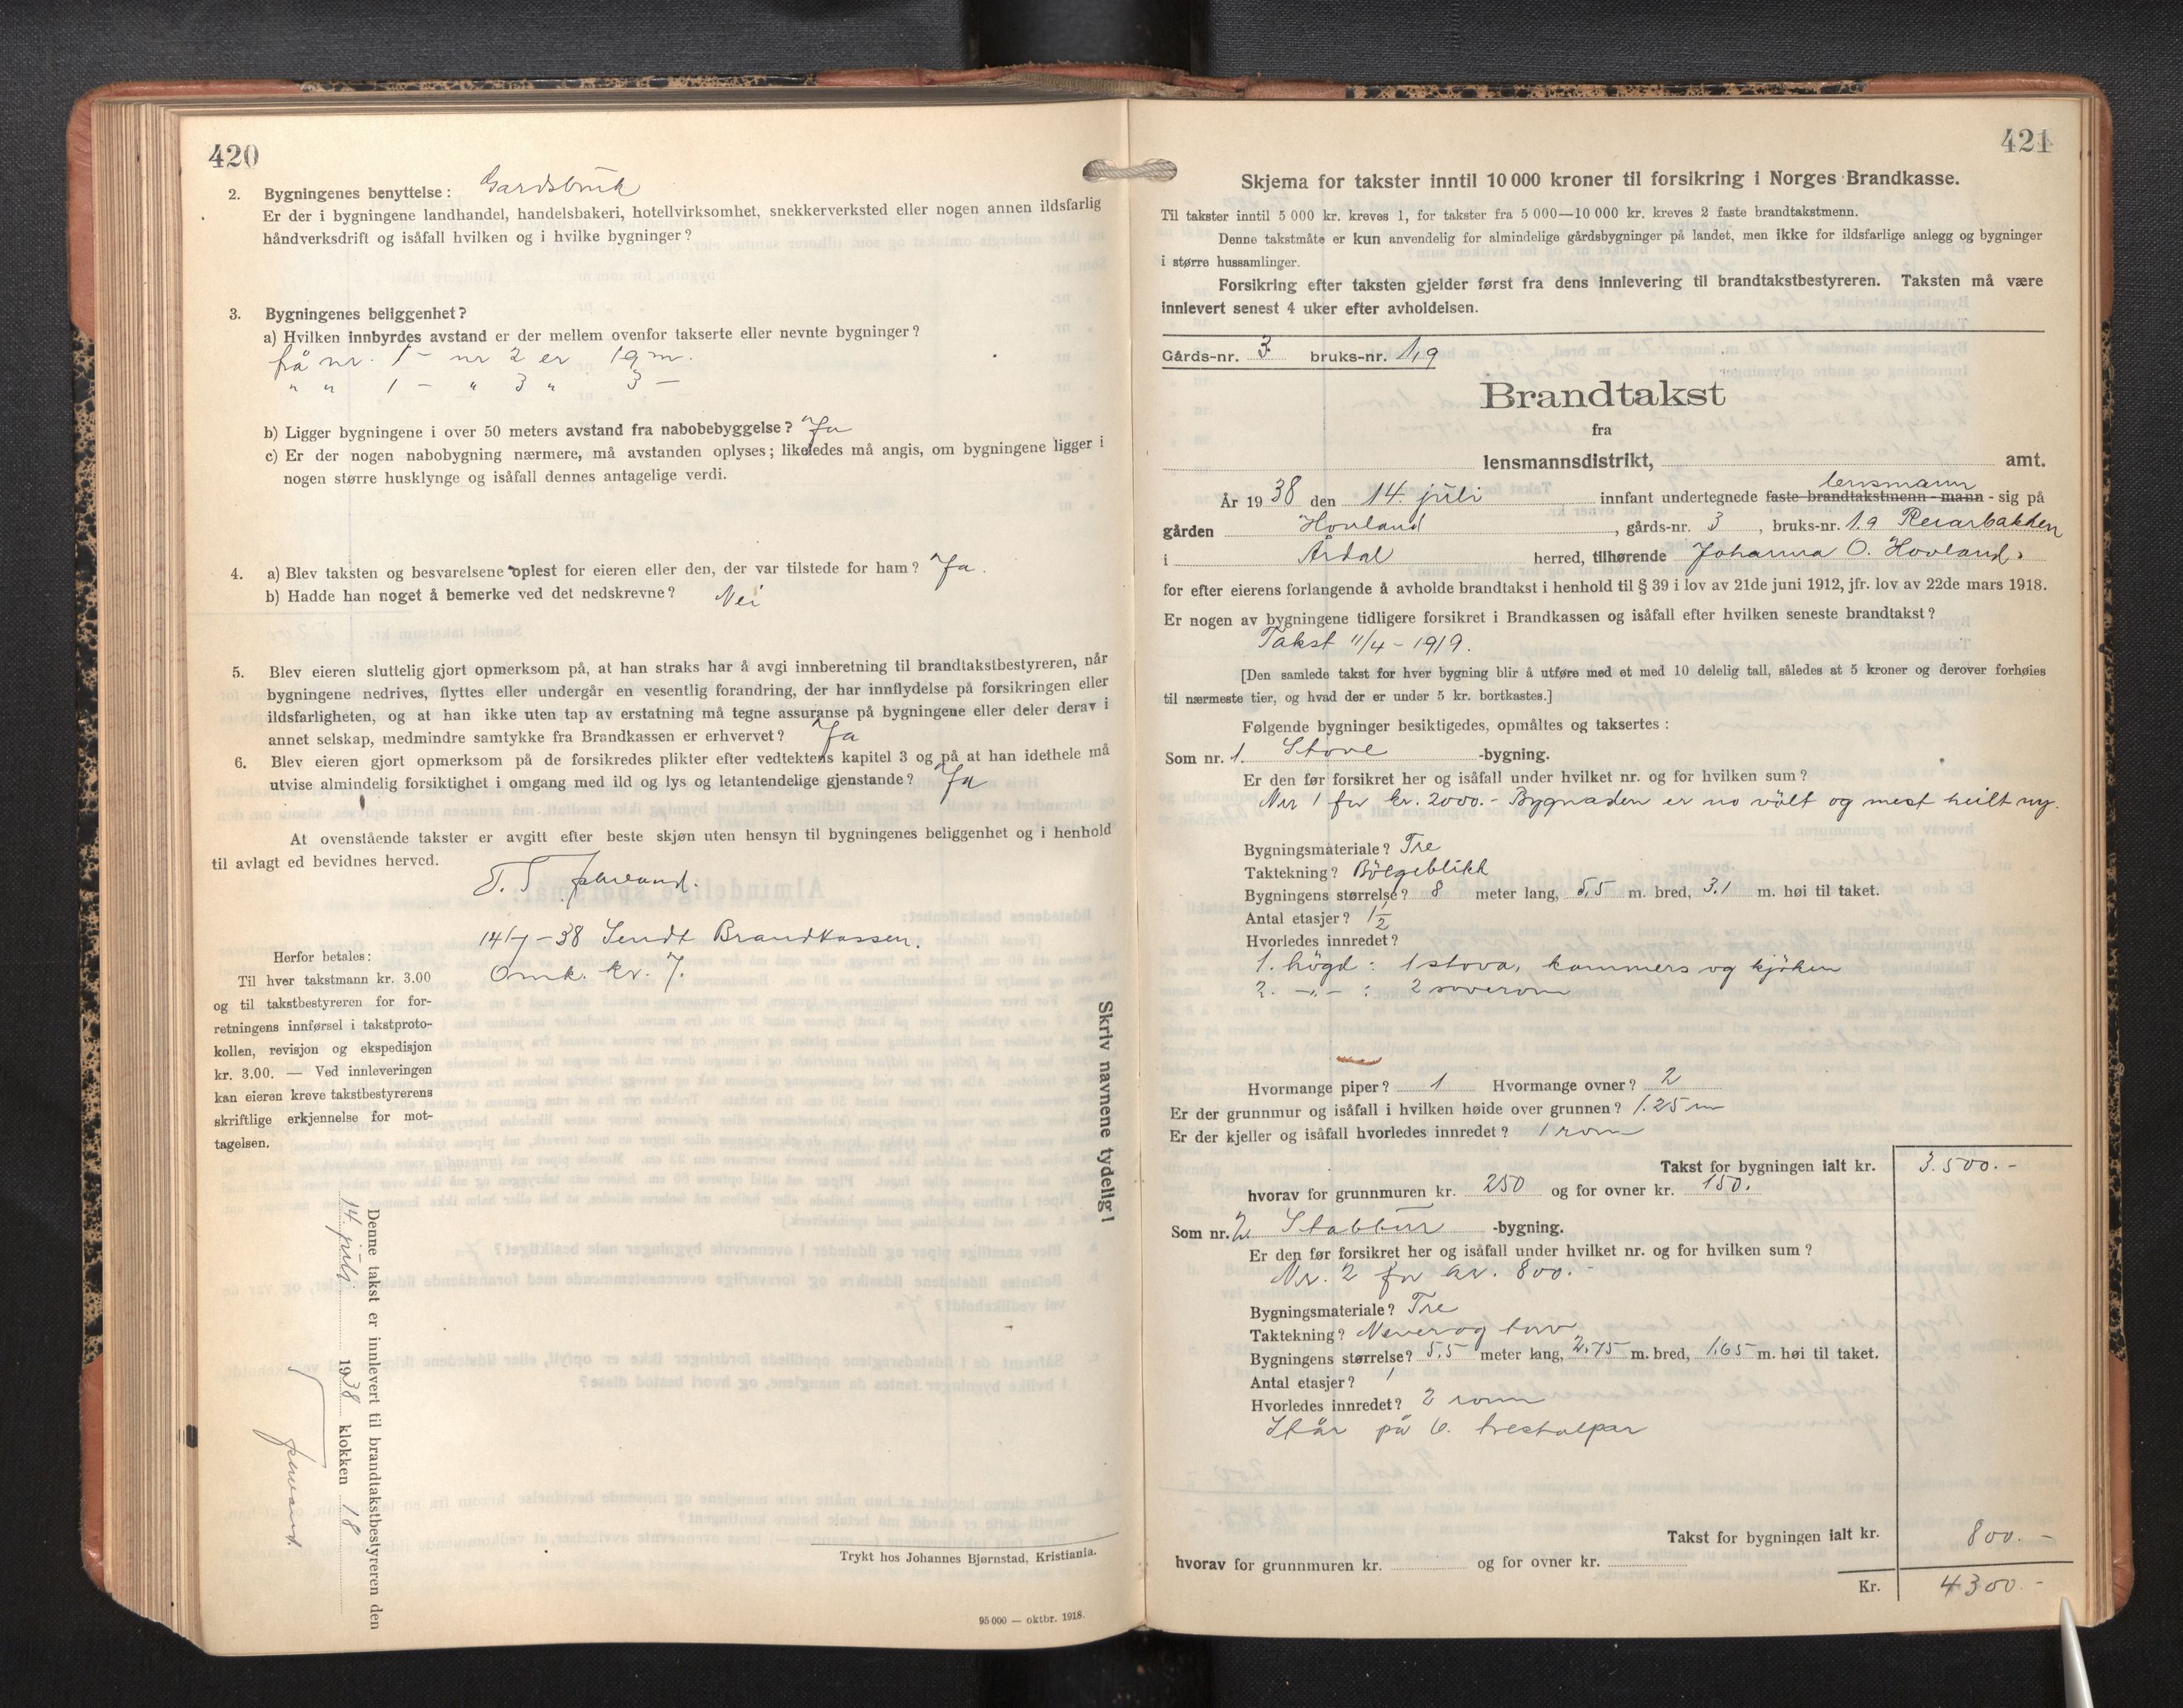 420
2. Bygningenes benyttelse: Gardsbruk
Er der i bygningene landhandel, handelsbakeri, hotellvirksomhet, snekkerverksted eller nogen annen ildsfarlig
håndverksdrift og isåfall hvilken og i hvilke bygninger?
3. Bygningenes beliggenhet?
a) Hvilken innbyrdes avstand er der mellem ovenfor takserte eller nevnte bygninger?
frå nr. 1 - nr 2 er 19 m.
" " 1 - " 3 " 3 -
b) Ligger bygningene i over 50 meters avstand fra nabobebyggelse? Ja
c) Er der nogen nabobygning nærmere, må avstanden oplyses; likeledes må angis, om bygningene ligger i
nogen større husklynge og isåfall dennes antagelige verdi.
4. a) Blev taksten og besvarelsene oplest for eieren eller den, der var tilstede for ham? Ja.
b) Hadde han noget å bemerke ved det nedskrevne? Nei
5. Blev eieren sluttelig gjort opmerksom på, at han straks har å avgi innberetning til brandtakstbestyreren, når
bygningene nedrives, flyttes eller undergår en vesentlig forandring, der har innflydelse på forsikringen eller
ildsfarligheten, og at han ikke uten tap av erstatning må tegne assuranse på bygningene eller deler derav i
annet selskap, medmindre samtykke fra Brandkassen er erhvervet? Ja
6. Blev eieren gjort opmerksom på de forsikredes plikter efter vedtektens kapitel 3 og på at han idethele må
utvise almindelig forsiktighet i omgang med ild og lys og letantendelige gjenstande? Ja
At ovenstående takster er avgitt efter beste skjøn uten hensyn til bygningenes beliggenhet og i henhold
til avlagt ed bevidnes herved.
14/7-38 Sendt Brandkassen.
Omk. kr. 7.
Herfor betales:
Til hver takstmann kr. 3.00
og til takstbestyreren for for-
retningens innførsel i takstproto-
kollen, revisjon og ekspedisjon
kr. 3.00. — Ved innleveringen
kan eieren kreve takstbestyrerens
skriftlige erkjennelse for mot-
tagelsen.
Skriv navnene tydelig!
Denne takst er innlevert til brandtakstbestyreren den
14. juli 1938 klokken 18
Trykt hos Johannes Bjørnstad, Kristiania.
95 000 — oktbr. 1918.
421
Skjema for takster inntil 10 000 kroner til forsikring i Norges Brandkasse.
Til takster inntil 5 000 kr. kreves 1, for takster fra 5 000—10 000 kr. kreves 2 faste brandtakstmenn.
Denne takstmåte er kun anvendelig for almindelige gårdsbygninger på landet, men ikke for ildsfarlige anlegg og bygninger
i større hussamlinger.
Forsikring efter taksten gjelder først fra dens innlevering til brandtakstbestyreren. Taksten må være
innlevert senest 4 uker efter avholdelsen.
Gårds-nr. 3 bruks-nr. 1,9
Brandtakst
fra
lensmannsdistrikt, amt.
lensmann
År 1938 den 14. juli innfant undertegnede faste brandtakstmenn - mann - sig på
gården Hovland, gårds-nr. 3, bruks-nr. 1.9 Reiarbakken
i Årdal herred, tilhørende Johanna O. Hovland.
for efter eierens forlangende å avholde brandtakst i henhold til § 39 i lov av 21de juni 1912, jfr. lov av 22de mars 1918.
Er nogen av bygningene tidligere forsikret i Brandkassen og isåfall efter hvilken seneste brandtakst?
Takst 11/4 - 1919.
[Den samlede takst for hver bygning blir å utføre med et med 10 delelig tall, således at 5 kroner og derover forhøies
til nærmeste tier, og hvad der er under 5 kr. bortkastes.]
Følgende bygninger besiktigedes, opmåltes og taksertes:
Som nr. 1. Stove -bygning.
Er den før forsikret her og isåfall under hvilket nr. og for hvilken sum?
Nr 1 for kr. 2000.- Bygnaden er no vølt og mest heilt ny.
Bygningsmateriale? Tre
Taktekning? Bølgeblikk
Bygningens størrelse? 8 meter lang, 5,5 m. bred, 3.1 m. høi til taket.
Antal etasjer? 1 1/2
Hvorledes innredet?
1. høgd: 1 stova, kammers og kjøken
2. -"- : 2 soverom
Hvormange piper? 1 Hvormange ovner? 2
Er der grunnmur og isåfall i hvilken høide over grunnen? 1.25 m
Er der kjeller og isåfall hvorledes innredet? 1 rom
Takst for bygningen ialt kr. 3.500.-
hvorav for grunnmuren kr. 250 og for ovner kr. 150.
Som nr. 2. Stabbur -bygning.
Er den før forsikret her og isåfall under hvilket nr. og for hvilken sum?
Nr. 2 for kr. 800.-
Bygningsmateriale? Tre
Taktekning? Never og torv
Bygningens størrelse? 5,5 meter lang, 2.75 m. bred, 1.65 m. høi til taket.
Antal etasjer? 1
Hvorledes innredet? 2 rom
Står på 6. trestolpar
Takst for bygningen ialt kr. 800.-
hvorav for grunnmuren kr. og for ovner kr.
Kr. 4300.-